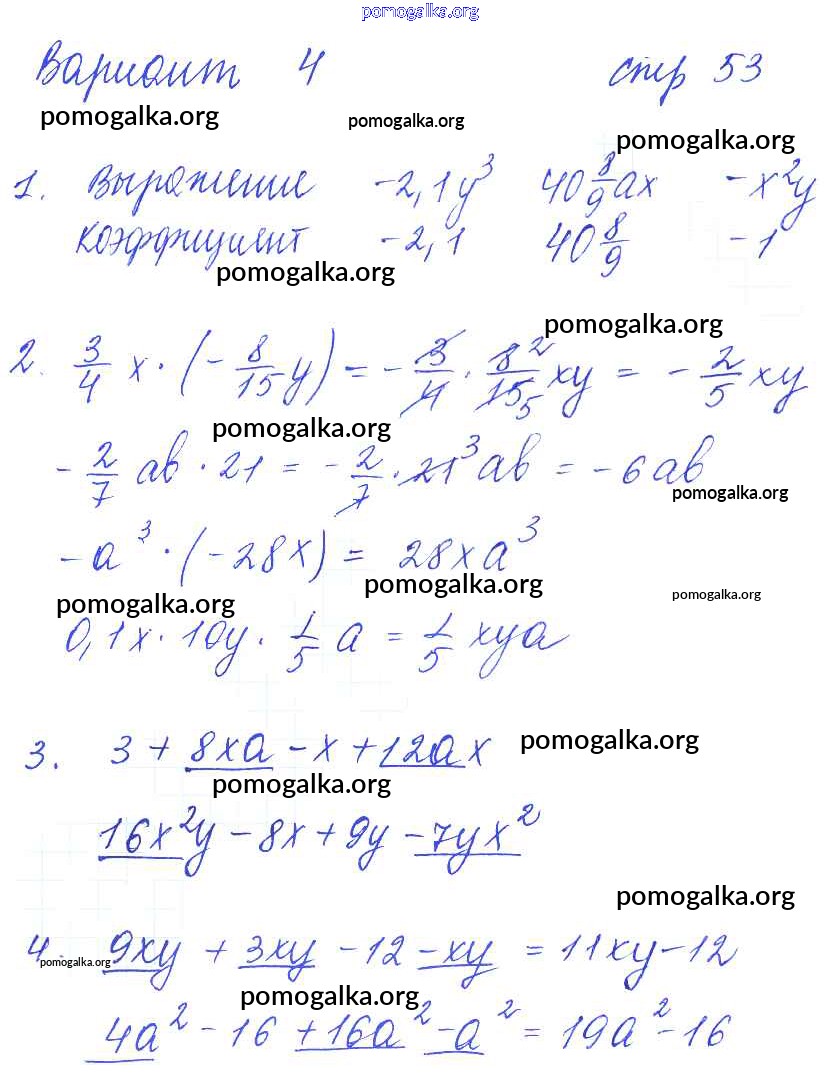 pomogalka.org
Вариант 4 стр 53
pomogalka.org pomogalka.org pomogalka.org
1. Выражение -2,1y³ 40 8/9 ax -x²y
коэффициент -2,1 40 8/9 -1
pomogalka.org
pomogalka.org
2. 3/4 x · (-8/15 y) = -3/4 · 8/15 2 5 xy = -2/5 xy
pomogalka.org
-2/7 ab · 21 = -2/7 · 21 3 ab = -6ab
pomogalka.org
-a³ · (-28x) = 28xa³
pomogalka.org pomogalka.org pomogalka.org
0,1x · 10y · 1/5 a = 1/5 xya
3. 3 + 8xa - x + 12ax pomogalka.org
pomogalka.org
16x²y - 8x + 9y - 7yx²
pomogalka.org
4. 9xy + 3xy - 12 - xy = 11xy - 12
pomogalka.org
pomogalka.org
4a² - 16 + 16a² - a² = 19a² - 16